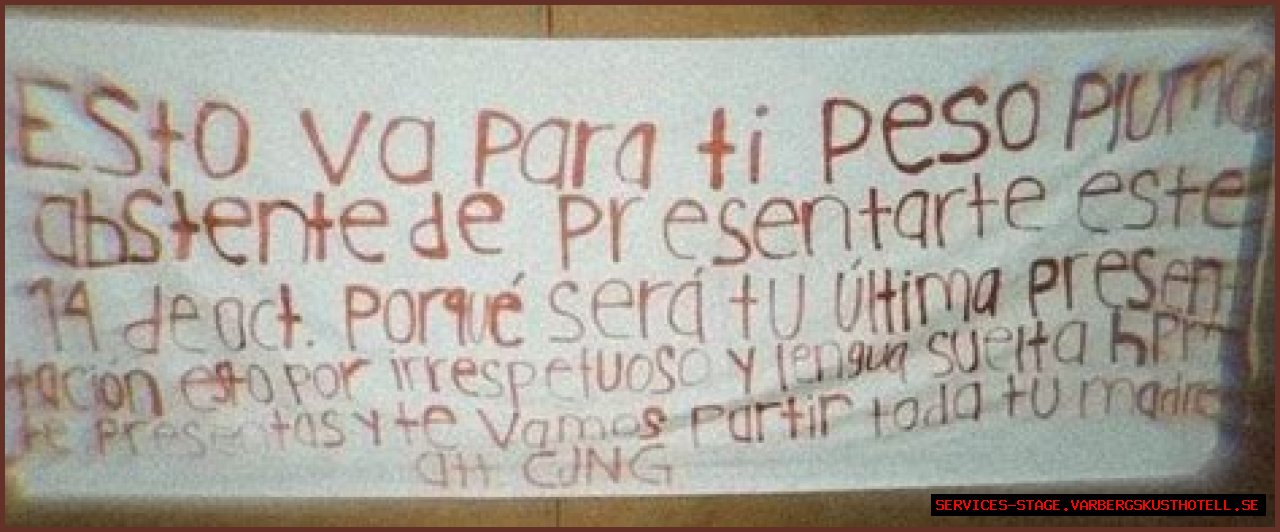 Esto va para ti peso pluma
abstente de presentarte este
14 de oct. porqué será tu última presen-
tación esto por irrespetuoso y lengua suelta hPm
te presentas y te vamos partir toda tu madre
att CJNG
SERVICES-STAGE.VARBERGSKUSTHOTELL.SE